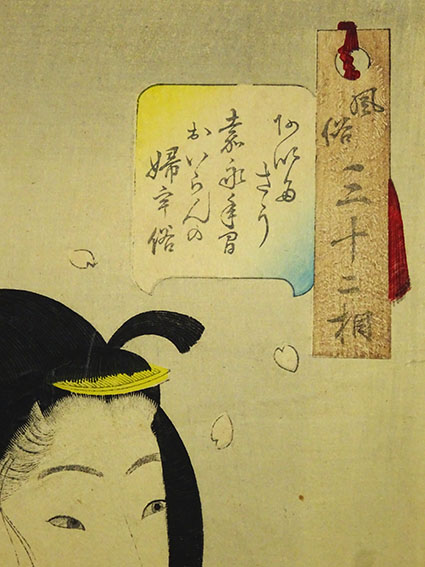 風俗三十二相
あひた
さう
嘉永年間
おいらんの
婦宇俗